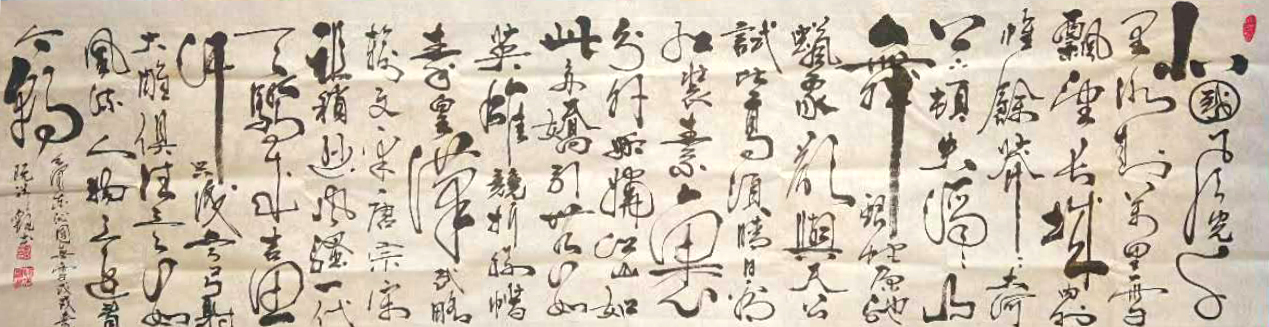 北國風光千
里冰封万里雪
飄望長城内外
惟餘莽〻大河
上下頓失滔〻山
舞銀蛇原馳
蠟象欲與天公
試比高須晴日看
紅裝素裹
分外妖嬈江山如
此多嬌引無數
英雄競折腰惜
秦皇漢武略
輸文采唐宗宋
祖稍遜風騷一代
天驕成吉思
汗只識彎弓射
大雕俱往矣數
風流人物還看
今朝
毛澤東沁園春雪戊戌